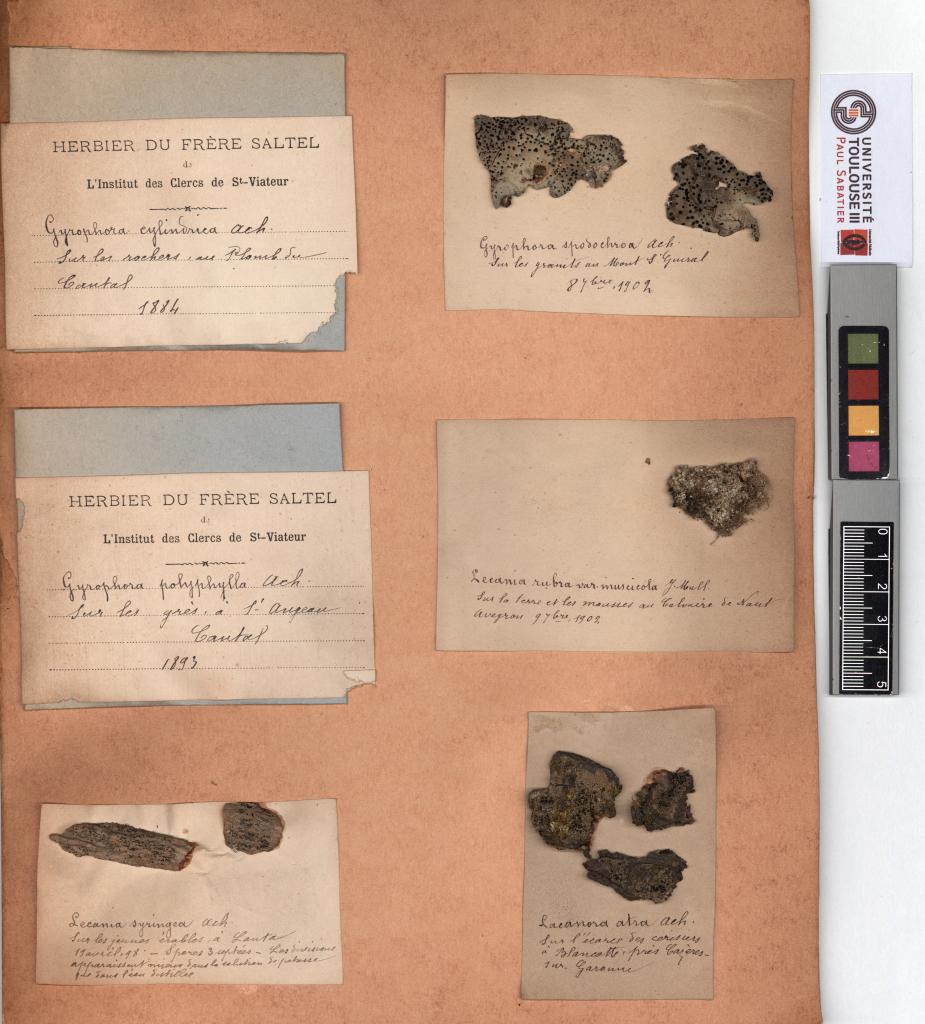 HERBIER DU FRÈRE SALTEL
de
L'Institut des Clercs de St-Viateur
Gyrophora cylindrica Ach.
Sur les rochers, au Plomb du
Cantal
1884
Gyrophora spodochroa Ach.
Sur les granits au Mont St Guiral
8 7bre 1902
UNIVERSITÉ
TOULOUSE III
PAUL SABATIER
HERBIER DU FRÈRE SALTEL
de
L'Institut des Clercs de St-Viateur
Gyrophora polyphylla Ach.
Sur les grès, à St Angeau
Cantal
1893
Lecania rubra var. muscicola J. Mull.
Sur la terre et les mousses au Calvaire de Nant
Aveyron 9 7bre 1902
0 1 2 3 4 5
Lecania syringea Ach.
Sur les jeunes érables, à Lanta
15 avril 98 - Spores 3 septées - Les divisions
apparaissent mieux dans la solution de potasse
que dans l'eau distillée
Lacanora atra Ach.
Sur l'écorce des cerisiers
à Blancotte, près Cazères-
sur. Garonne